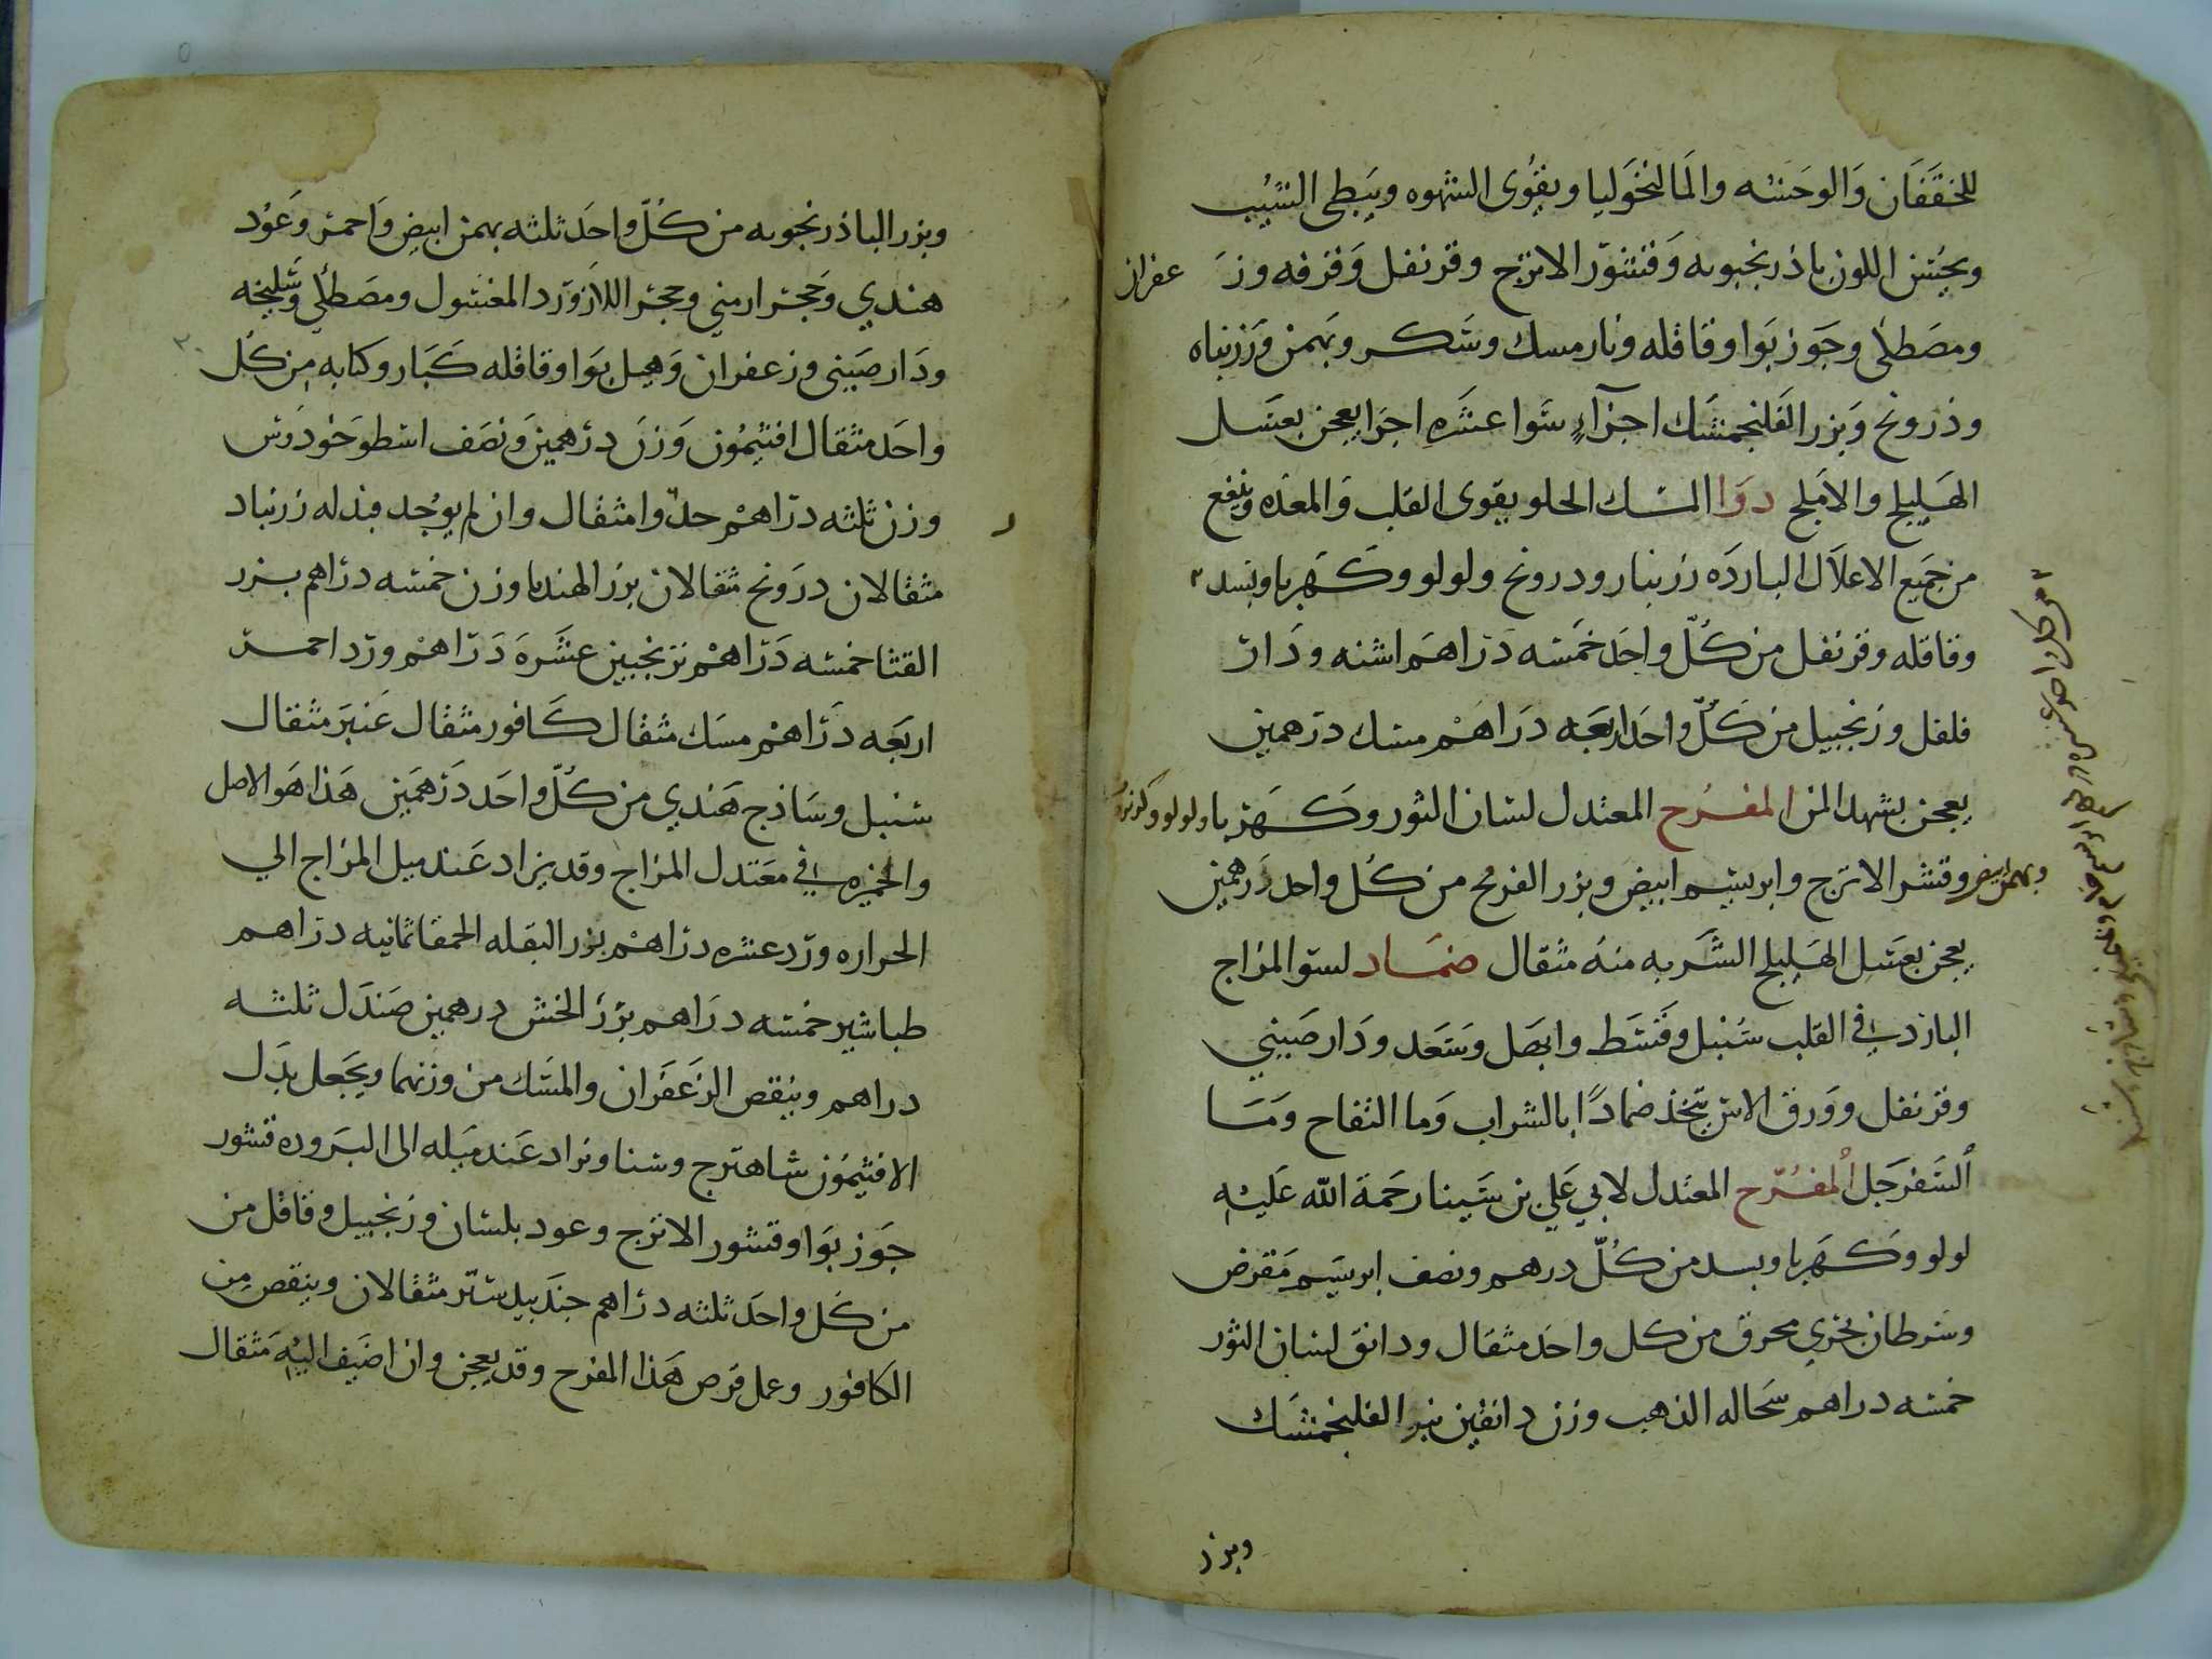 للخفقان والوحشه والمالنخوليا ويقوى الشهوه ويبطى الشيب
ويحسن اللون باذرنجبويه وقشور الاترج وقرنفل وقرفه وز عفران
ومصطكى وجوز بوا وقاقله ونارمسك وسكر وبهمن وزرنباه
وذرونج وبزر الفلنجمشك اجزآء سوا عشره اجزا يعجن بعسل
الهليلج والاملج دوا المسك الحلو يقوى القلب والمعده وينفع
من جميع الاعلال البارده زرنبار ودرونج ولولو وكهربا وبسد
وقاقله وقرنفل من كل واحد خمسه دراهم اشنه ودار
فلفل وزنجبيل من كل واحد اربعه دراهم مسك درهمين
يعجن بشهد المن المفرح المعتدل لسان الثور وكهربا ولولو
وبهمن ابيض وقشر الاترج وابريسم ابيض وبزر الفرنج من كل واحد درهمين
يعجن بعسل الهليلج الشربه منه مثقال ضماد لسو المزاج
البارد في القلب سنبل وقسط وابهل وسعد ودار صيني
وقرنفل وورق الاترج يتخذ ضمادًا بالشراب وما التفاح وما
السفرجل المفرح المعتدل لابي علي بن سينا رحمة الله عليه
لولو وكهربا وبسد من كل درهم ونصف ابريسم مقرض
وسرطان بحري محرق من كل واحد مثقال ودانق لسان الثور
خمسه دراهم سحاله الذهب وزن دانقين بزر الفلنجمشك
وبزر
وبزر الباذرنجبويه من كل واحد ثلثه بهمن ابيض واحمر وعود
هندي وحجر ارمني وحجر اللازورد المغسول ومصطكي وسليخه
ودار صيني وزعفران وهيل بوا وقاقله كبار وكبابه من كل
واحد مثقال افتيمون وزن درهمين ونصف اسطوخودوس
وزن ثلثه دراهم جدوا مثقال وان لم يوجد فبدله زرنباد
مثقالان درونج مثقالان بزر الهندبا وزن خمسه دراهم بزر
القثا خمسه دراهم ترنجبين عشره دراهم ورد احمر
اربعه دراهم مسك مثقال كافور مثقال عنبر مثقال
سنبل وساذج هندي من كل واحد درهمين هذا هو الاصل
والخميره في معتدل المزاج وقد يزاد عند ميل المزاج الي
الحراره ورد عشره دراهم بزر البقله الحمقا ثمانيه دراهم
طباشير خمسه دراهم بزر الخس درهمين صندل ثلثه
دراهم وينقص الزعفران والمسك من وزنهما ويجعل بدل
الافتيمون شاهترج وسنا ويزاد عند ميله الى البروده قشور
جوز بوا وقشور الاترج وعود بلسان وزنجبيل وقاقل من
من كل واحد ثلثه دراهم جندبيدستر مثقالان وينقص من
الكافور وعمل قرص هذا المفرح وقد يعجن وان اضيف اليه مثقال